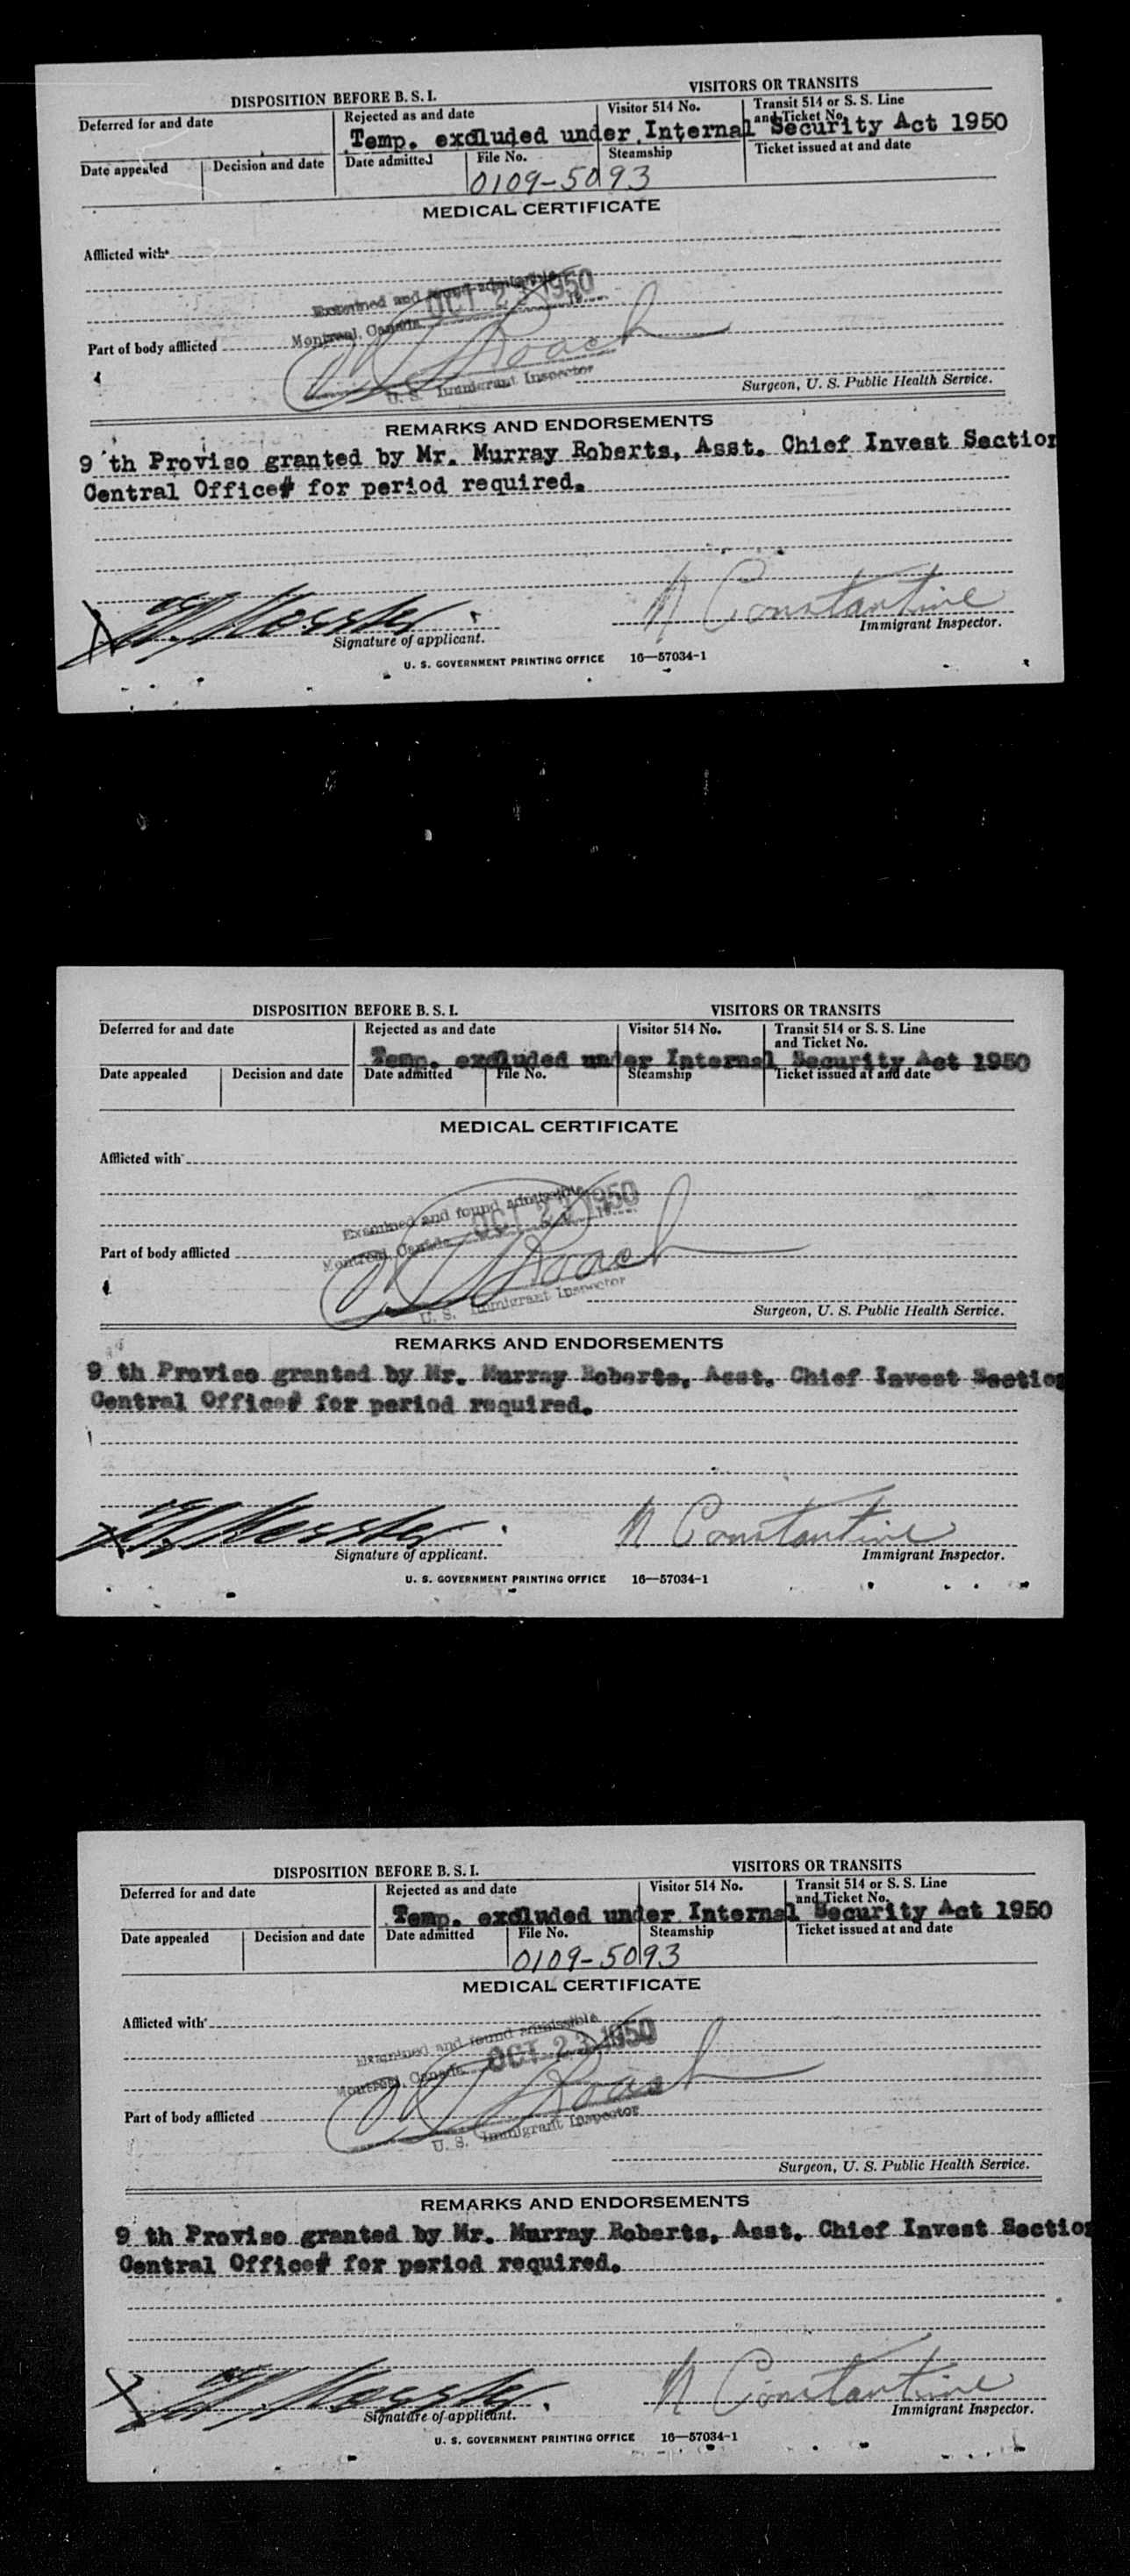 DISPOSITION BEFORE B. S. I.
VISITORS OR TRANSITS
Deferred for and date
Rejected as and date
Visitor 514 No.
Transit 514 or S. S. Line
and Ticket No.
Temp. excluded under Internal Security Act 1950
Date appealed
Decision and date
Date admitted
File No.
Steamship
Ticket issued at and date
0109-5093
MEDICAL CERTIFICATE
Afflicted with
Examined and found admissible
OCT 23 1950
Montreal, Canada 19
Part of body afflicted
Roach
U. S. Immigrant Inspector
Surgeon, U. S. Public Health Service.
REMARKS AND ENDORSEMENTS
9 th Proviso granted by Mr. Murray Roberts, Asst. Chief Invest Section
Central Office# for period required.
X
N Constantine
Signature of applicant.
Immigrant Inspector.
U. S. GOVERNMENT PRINTING OFFICE 16—57034-1
DISPOSITION BEFORE B. S. I.
VISITORS OR TRANSITS
Deferred for and date
Rejected as and date
Visitor 514 No.
Transit 514 or S. S. Line
and Ticket No.
Temp. excluded under Internal Security Act 1950
Date appealed
Decision and date
Date admitted
File No.
Steamship
Ticket issued at and date
MEDICAL CERTIFICATE
Afflicted with
Examined and found admissible
OCT 23 1950
Montreal, Canada 19
Part of body afflicted
Roach
U. S. Immigrant Inspector
Surgeon, U. S. Public Health Service.
REMARKS AND ENDORSEMENTS
9 th Proviso granted by Mr. Murray Roberts, Asst. Chief Invest Section
Central Office# for period required.
X
N Constantine
Signature of applicant.
Immigrant Inspector.
U. S. GOVERNMENT PRINTING OFFICE 16—57034-1
DISPOSITION BEFORE B. S. I.
VISITORS OR TRANSITS
Deferred for and date
Rejected as and date
Visitor 514 No.
Transit 514 or S. S. Line
and Ticket No.
Temp. excluded under Internal Security Act 1950
Date appealed
Decision and date
Date admitted
File No.
Steamship
Ticket issued at and date
0109-5093
MEDICAL CERTIFICATE
Afflicted with
Examined and found admissible
OCT 23 1950
Montreal, Canada
Part of body afflicted
Roach
U. S. Immigrant Inspector
Surgeon, U. S. Public Health Service.
REMARKS AND ENDORSEMENTS
9 th Proviso granted by Mr. Murray Roberts, Asst. Chief Invest Section
Central Office# for period required.
X
N Constantine
Signature of applicant.
Immigrant Inspector.
U. S. GOVERNMENT PRINTING OFFICE 16—57034-1